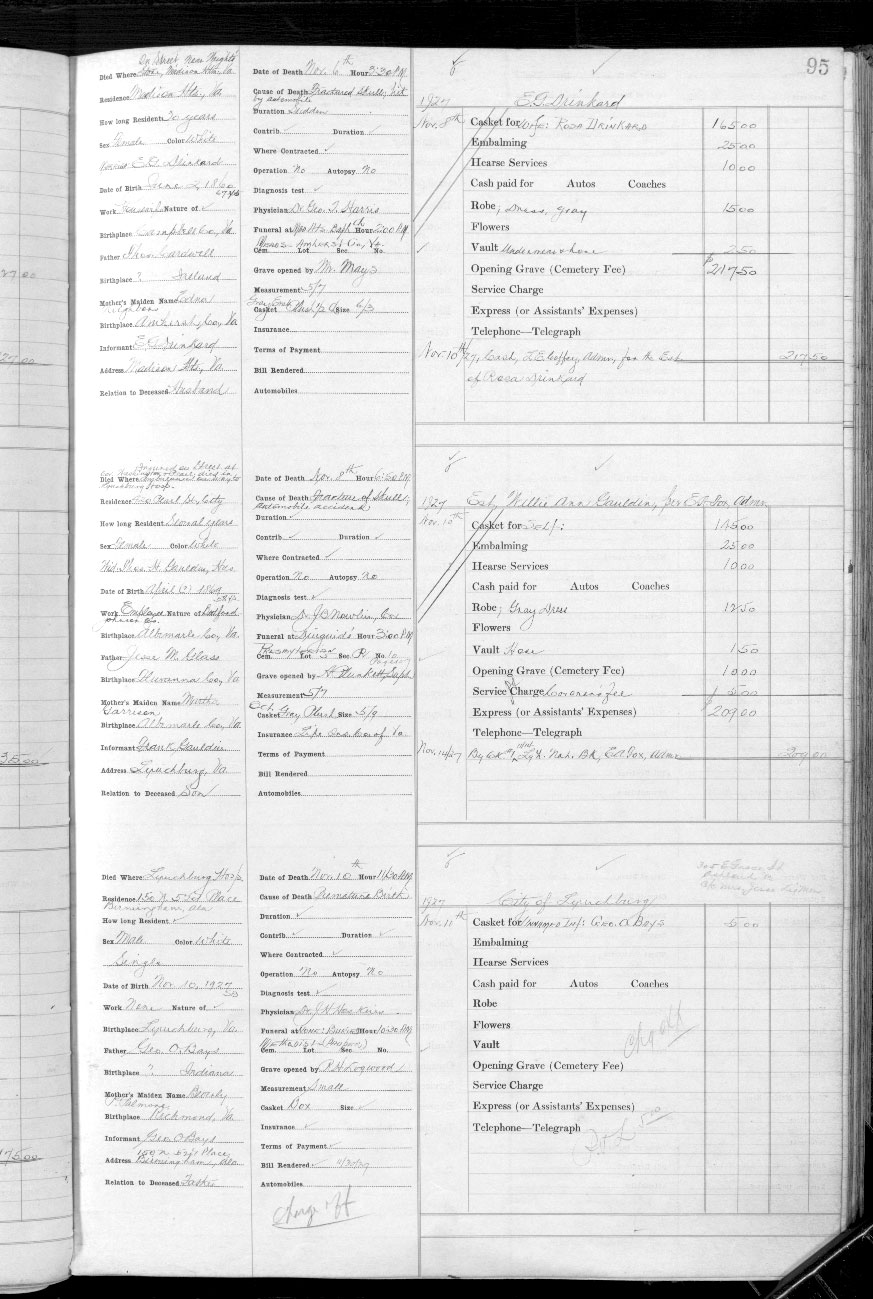 95
On Street, Near Wright's
Died Where Store, Madison Hts, Va
Residence Madison Hts, Va
How long Resident 30 years
Sex Female Color White
E.G. Drinkard
Date of Birth June 2, 1860
Work Nature of ✓
Birthplace Campbell Co, Va
Father Thos. Cardwell
Birthplace " Ireland
Mother's Maiden Name Edna
Birthplace Amherst, Co, Va
Informant E.G. Drinkard
Address Madison Hts, Va
Relation to Deceased Husband
Date of Death Nov. 6th Hour 3:30 P.M.
Cause of Death Fractured Skull, hit
by automobile
Duration Sudden
Contrib. ✓ Duration ✓
Where Contracted ✓
Operation No Autopsy No
Diagnosis test ✓
Physician Dr. Geo. T. Harris
Funeral at Mad Hts Bapth Hour 2:00 P.M
Amherst Co, Va.
Cem. Lot Sec. No.
Grave opened by Mr. Mays
Measurement 5/7
Casket Plush Size 6/3
Insurance
Terms of Payment
Bill Rendered
Automobiles
1927 E.G. Drinkard
Nov. 8th Casket for Wife: Rosa Drinkard 165 00
Embalming 25 00
Hearse Services 10 00
Cash paid for Autos Coaches
Robe; Dress, gray 15 00
Flowers
Vault Underwear & hose 2 50
Opening Grave (Cemetery Fee) $217 50
Service Charge
Express (or Assistants' Expenses)
Telephone—Telegraph
Nov. 10th/27, Cash, Admr, for the Est 217 50
of Rosa Drinkard
Injured on Street at
Died Where
Lynchburg Hosp.
Residence Pearl St, City
How long Resident Several years
Sex Female Color White
Wid. Thos. H. Gaulden, Dec
Date of Birth April 1869
Work Employee Nature of
Birthplace Albemarle Co, Va.
Father Jesse M. Glass
Birthplace Fluvanna Co, Va
Mother's Maiden Name Martha
Garrison
Birthplace Albemarle Co, Va
Informant Frank Gaulden
Address Lynchburg, Va
Relation to Deceased Son
Date of Death Nov. 8th Hour 6:50 P.M.
Cause of Death Fracture of Skull;
automobile accident
Duration
Contrib. ✓ Duration ✓
Where Contracted ✓
Operation No Autopsy No
Diagnosis test ✓
Physician Dr. J.B. Nowlin, Cor
Funeral at Diuguid's Hour 3:00 P.M
Presbyterian
Cem. Lot 3 Sec. R No. 10
Grave opened by
Measurement 5/7
Casket Gray Plush Size 5/9
Insurance Life Ins. Co. of Va.
Terms of Payment
Bill Rendered
Automobiles
1927 Est, Willie Ann Gaulden, per E.A. Fox, Admr.
Nov. 10th Casket for Self: 145 00
Embalming 25 00
Hearse Services 10 00
Cash paid for Autos Coaches
Robe; Gray Dress 12 50
Flowers
Vault Hose 1 50
Opening Grave (Cemetery Fee) 10 00
Service Charge Coroner's fee 5 00
Express (or Assistants' Expenses) $209 00
Telephone—Telegraph
Nov. 14/27 By Ck #1, Nat. Bk, E.A. Fox, Admr 209 00
Died Where Lynchburg Hosp
Residence Place
Birmingham, Ala
How long Resident ✓
Sex Male Color White
Single
Date of Birth Nov 10, 1927
Work None Nature of ✓
Birthplace Lynchburg, Va
Father Geo. O. Bays
Birthplace " Indiana
Mother's Maiden Name
Birthplace Richmond, Va
Informant Geo O Bays
Address Birmingham, Ala
Relation to Deceased Father
Date of Death Nov. 10th Hour 11:30 A.M.
Cause of Death Premature Birth
Duration ✓
Contrib. ✓ Duration ✓
Where Contracted ✓
Operation No Autopsy No
Diagnosis test ✓
Physician Dr. J.H. Hoskins
Funeral at Hour 10:30 A.M
Methodist
Cem. Lot Sec. No.
Grave opened by R.H. Logwood
Measurement Small
Casket Box Size ✓
Insurance ✓
Terms of Payment ✓
Bill Rendered ✓ 11/30/27
Automobiles
Charge off
1927 City of Lynchburg
Nov. 11th Casket for Unnamed Inf: Geo. O Bays 5 00
Embalming
Hearse Services
Cash paid for Autos Coaches
Robe
Flowers
Vault
Chg off
Opening Grave (Cemetery Fee)
Service Charge
Express (or Assistants' Expenses)
Telephone—Telegraph
P & L 5 00
27.00
27.00
35.00
175.00